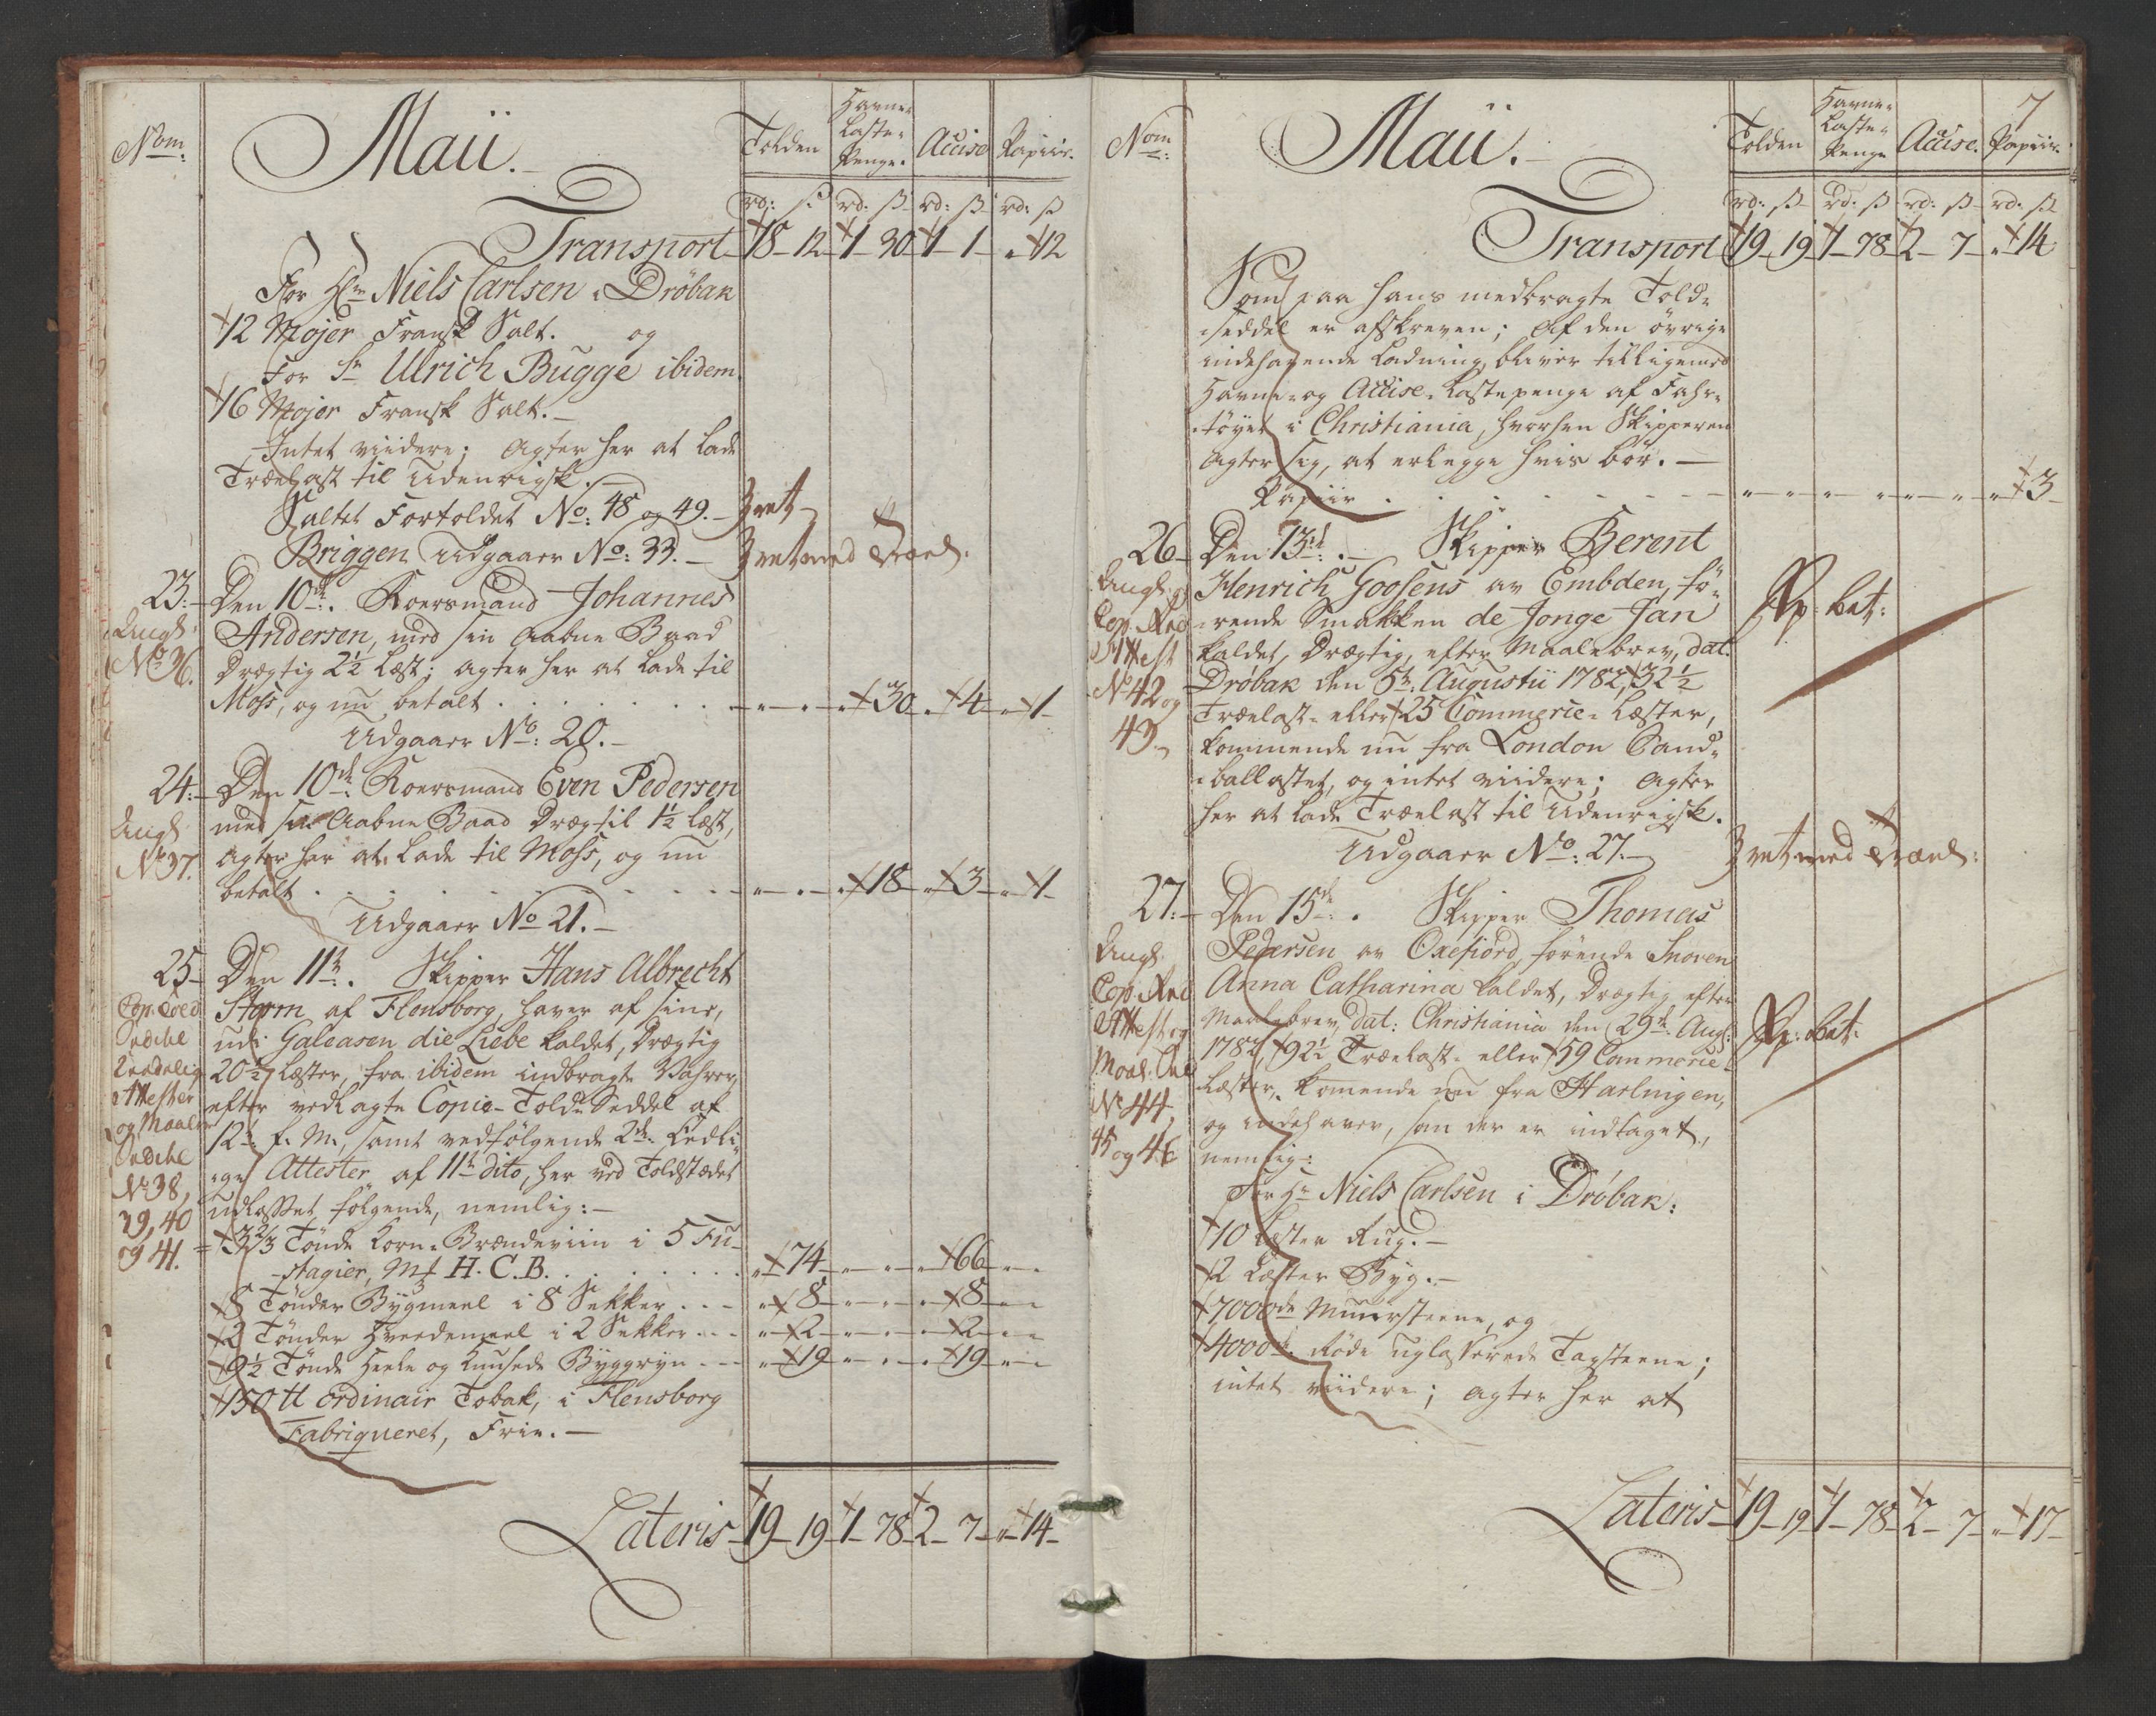 Nom:
Maii.
Tolden
Havne-
Laste-
Penge.
Accise
Papiir.
rd: ß rd. ß rd: ß rd: ß
Transport 18 - 12 - 1 - 30 - 1 - 1 - " 12
For Hr Niels Carlsen i Dröbak
12 Mojer Fransk Salt. og
For Sr Ulrich Bugge ibidem
16 Mojer Fransk Salt. -
Intet viidere; agter her at lade
Trælast til Udenrigsk. -
Saltet Fortoldet No: 48 og 49. -
Briggen Udgaaer No: 33. -
23: - Den 10de. Roersmand Johannes
Andersen, med sin aabne Baad
Angl:
No 36.
Drægtig 2½ Læst; agter her at lade til
Moss, og nu betalt . . . . . " - " - " 30 - " 4 - " 1 -
Udgaaer No: 20. -
24: - Den 10de: Roersmand Even Pedersen
med sin aabne Baad Drægtil 1½ Læst,
Angl:
No 37.
agter her at lade til Moss, og nu
betalt . . . . . " - " - " 18 - " 3 - " 1 -
Udgaaer No 21. -
25 - Den 11te. Skipper Hans Albrecht
Storm af Flensborg, haver af sine,
udi Galeasen die Liebe kaldet, Drægtig
20½ Læster, fra ibidem indbragte Vahrer,
efter vedlagte Copie-Told-Seddel af
12te f. M., samt vedfölgende 2de Lædli-
ge Attester af 11te dito, her ved Toldstædet
udlosset fölgende, nemlig: -
Attester
og Maale
Seddel
No 38,
39, 40
og 41.
3⅔ Tönde Korn-Brændeviin i 5 Fu-
stagier, Mk H. C. B. . . . . " 74 - " - " - " 66 - " - "
8 Tönder Bygmeel i 8 Sekker . . - " 8 - " - " - " 8 - " - "
2 Tönder Hvedemeel i 2 Sekker . . - " 2 - " - " - " 2 - " - "
9½ Tönde Heele og Knusede Byggryn - - " 19 - " - " - " 19 - " - "
150 ℔ ordinair Tobak, i Flensborg
Fabriqueret, Frie. -
Lateris - 19 - 19 - 1 - 78 - 2 - 7 - " - 14 -
Nom:
Maii.
Tolden
Havne-
Laste-
Penge
Accise.
Papiir.
7
rd: ß rd: ß rd: ß rd. ß
Transport 19 - 19 - 1 - 78 - 2 - 7 - " 14
Som paa hans medbragte Told-
seddel er afskreven; Af den övrige
indehavende Ladning, bliver tilligemed
Havne- og Accise-Lastepenge af Fahr-
töyet i Christiania, hvorhen Skipperen
agter sig, at erlegge hvis bör. -
Papiir . . . . . " - " - " - " - " - " - " 3 -
26 - Den 13de. - Skipper Berent
Henrich Goosens av Embden, fö-
rende Smakken de Jonge Jan
kaldet, Drægtig, efter Maalebrev, dat.
Dröbak den 5te Augustii 1782, 32½
Trælast- eller 25 Commerce-Læster,
kommende nu fra London Sand-
ballastet, og intet viidere; agter
her at lade Trælast til Udenrigsk.
Udgaaer No: 27. -
Attest
No 42 og
43. -
Pp: bet:
27: - Den 15de. Skipper Thomas
Pedersen av Oxefiord, förende Snoven
Anna Catharina kaldet, Drægtig efter
Maalebrev, dat: Christiania den 29de Aug:
1782, 92½ Trælast- eller 59 Commerce-
Læster, komende nu fra Harlingen,
og indehaver, som der er indtaget,
nemlig:
Angl:
Attest og
No 44,
45 og 46
Pp: bet:
For Hr Niels Carlsen i Dröbak:
10 Læster Rug. -
2 Læster Byg. -
7000de Muursteene, og
4000de Röde uglasserede Tagsteene;
intet viidere; agter her at
Lateris - 19 - 19 - 1 - 78 - 2 - 7 - " - 17 -